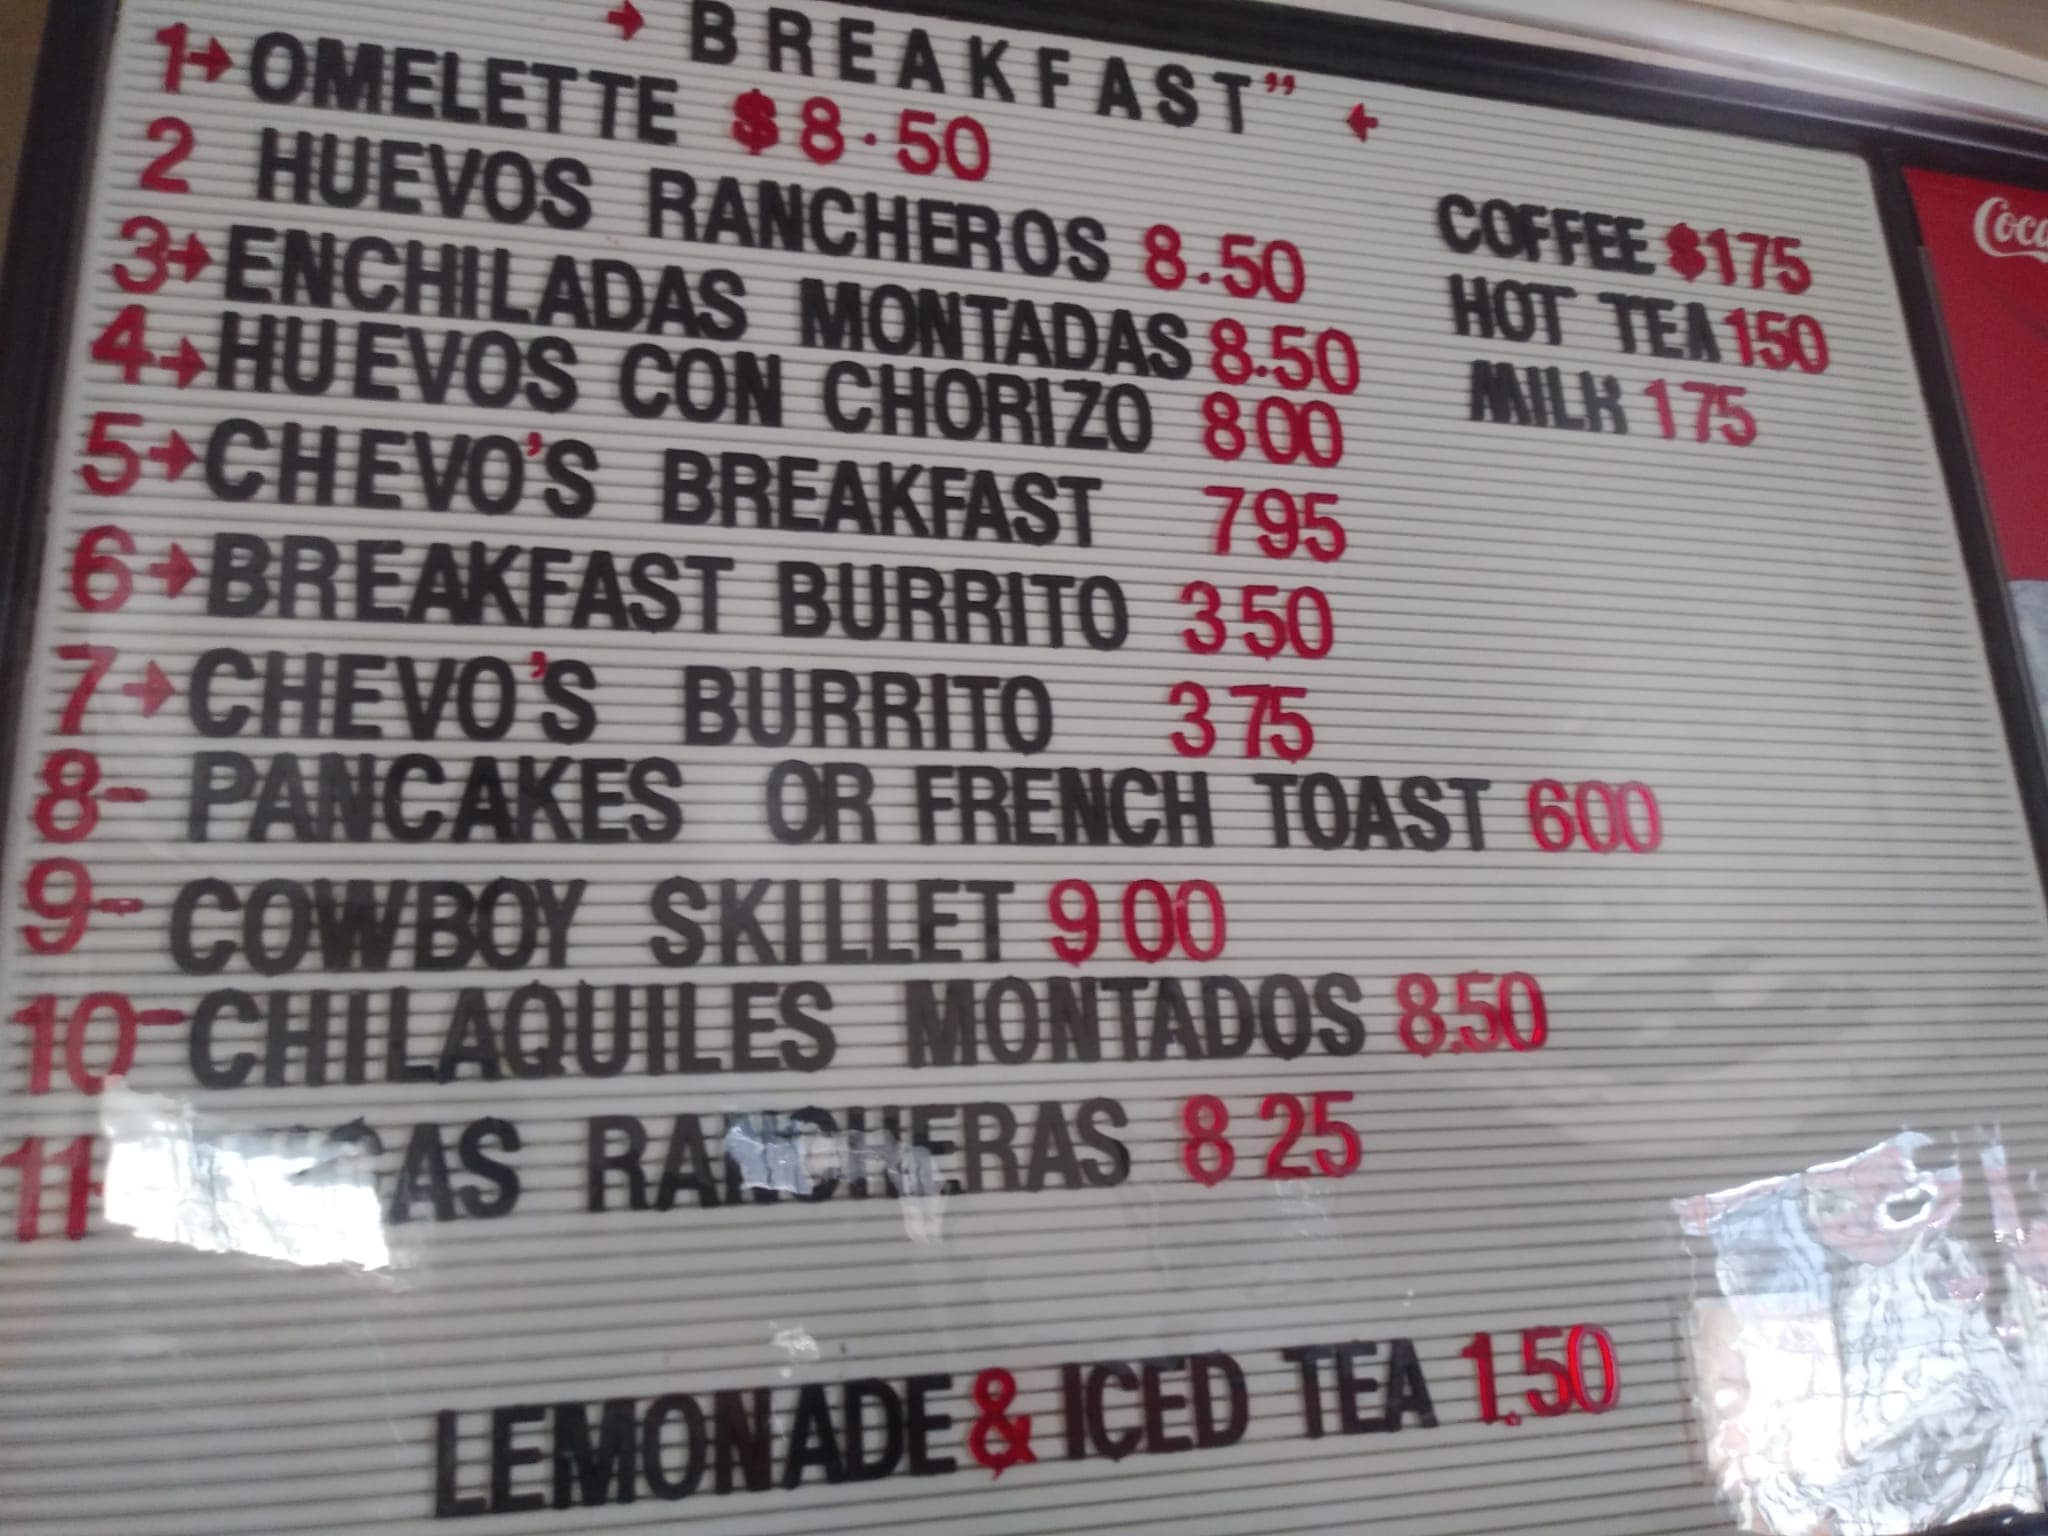 → BREAKFAST" ←
1→ OMELETTE $8.50
2 HUEVOS RANCHEROS 8.50
3→ ENCHILADAS MONTADAS 8.50
4→ HUEVOS CON CHORIZO 800
5→ CHEVO'S BREAKFAST 795
6→ BREAKFAST BURRITO 350
7→ CHEVO'S BURRITO 375
8- PANCAKES OR FRENCH TOAST 600
9- COWBOY SKILLET 900
10- CHILAQUILES MONTADOS 8.50
11- RANCHERAS 825
COFFEE $175
HOT TEA 150
MILK 175
LEMONADE & ICED TEA 1.50